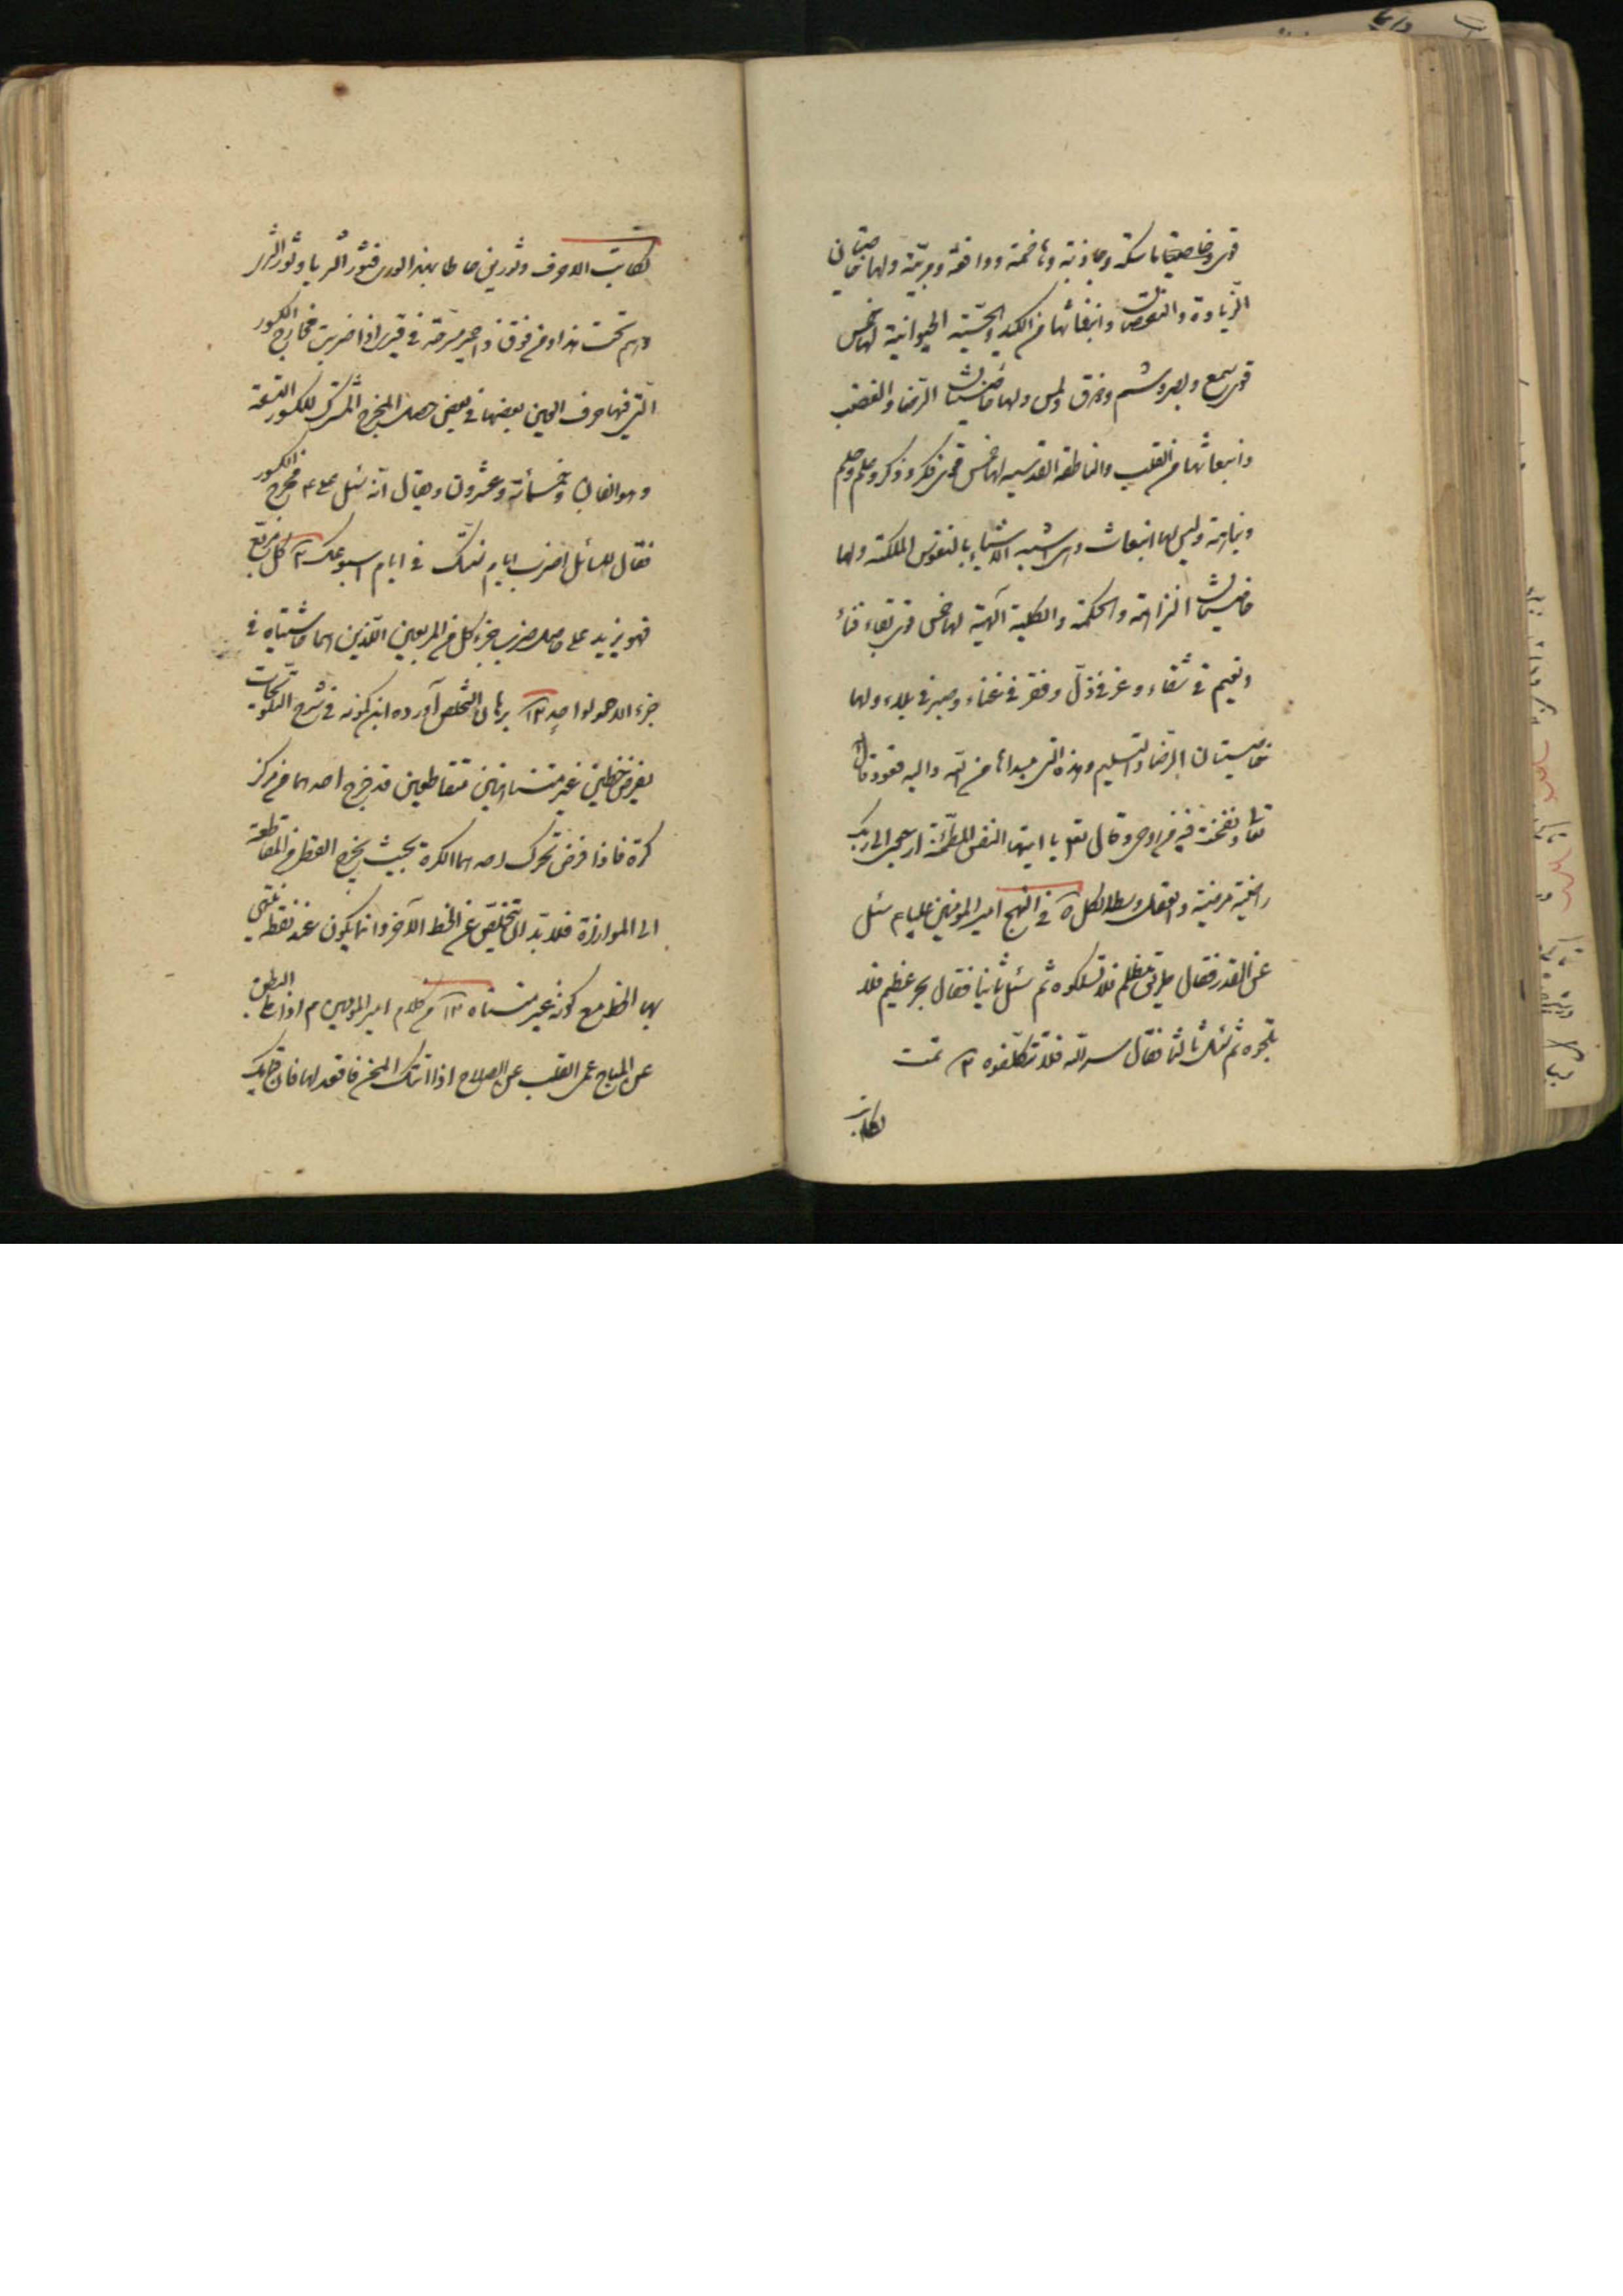 قوی وخاصیتا ماسکة وجاذبة وهاضمة ودافعة ومربّیة ولها خاصیتان
الزیادة والنقصان وانبعاثها من الکبد والحسّیة الحیوانیة لها خمس
قوی سمع وبصر وشم وذوق ولمس ولها خاصیتان الرّضا والغضب
وانبعاثها من القلب والناطقة القدسیه لها خمس قوی فکر وذکر وعلم وحلم
ونباهة ولیس لها انبعاث وهی اشبه الاشیاء بالنفوس الملکیة ولها
خاصیتان النزاهة والحکمة والکلیة الآلهیة لها خمس قوی بقاء فی فناء
ونعیم فی شقاء وعز فی ذلّ وفقر فی غناء وصبر فی بلاء ولها
خاصیتان الرّضا والتسلیم وهذه التی مبداها من الله والیه تعود قال
تعا ونفخت فیه من روحی وقال تعا یا ایتها النفس المطمئنة ارجعی الی ربک
راضیة مرضیة والعقل وسط الکل ۵ فی النهج امیر المومنین علیه م سئل
عن القدر فقال طریق مظلم فلا تسلکوه ثم سئل ثانیا فقال بحر عظیم فلا
تلجوه ثم سئل ثالثا فقال سر الله فلا تتکلفوه ۱۲ تمت
لکاتب
لکاتب الاحرف وثورین حاطا بهذا الوری فثور الثریا وثور الثری
وهم تحت هذا ومن فوق ذا حمیر مسرجة فی قری اذا ضربت مخارج الکسور
الّتی فیها حرف العین بعضها فی بعض حصل المخرج المشترک للکسور التسعة
وهو الفان وخمسمائة وعشرون ویقال انه سئل علی ع م مخرج الکسور
فقال للسائل اضرب ایام سنتک فی ایام اسبوعک ۱۲ کل مربع
فهو یزید علی حاصل ضرب جزء کل من المربعین اللّذین هما حاشیتاه فی
جزء الاخر بواحد ۱۲ برهان التخلص آورده ابن کمونه فی شرح التلویحات
بفرض خطین غیر متناهیین متقاطعین قد خرج احدهما من مرکز
کرة فاذا فرض تحرک احدهما الکرة بحیث یخرج القطر من المقاطعة
الی الموازاة فلا بدّ ان یتخلّص عن الخط الآخر وانما یکون عند نقطة ینتهی
بها الخط مع کونه غیر متناه ۱۲ من کلام امیر المومنین م اذا ملئ البطن
عن المباح عمی القلب عن الصلاح اذا اتتک المحن فاقعد لها فان قیامک